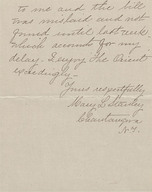 to me and the bill
was mislaid and not
found until last week
which accounts for my
delay. I enjoy The Orient
exceedingly.
Yours respectfully
Mary L. Stanley
Chautauqua
N.Y.